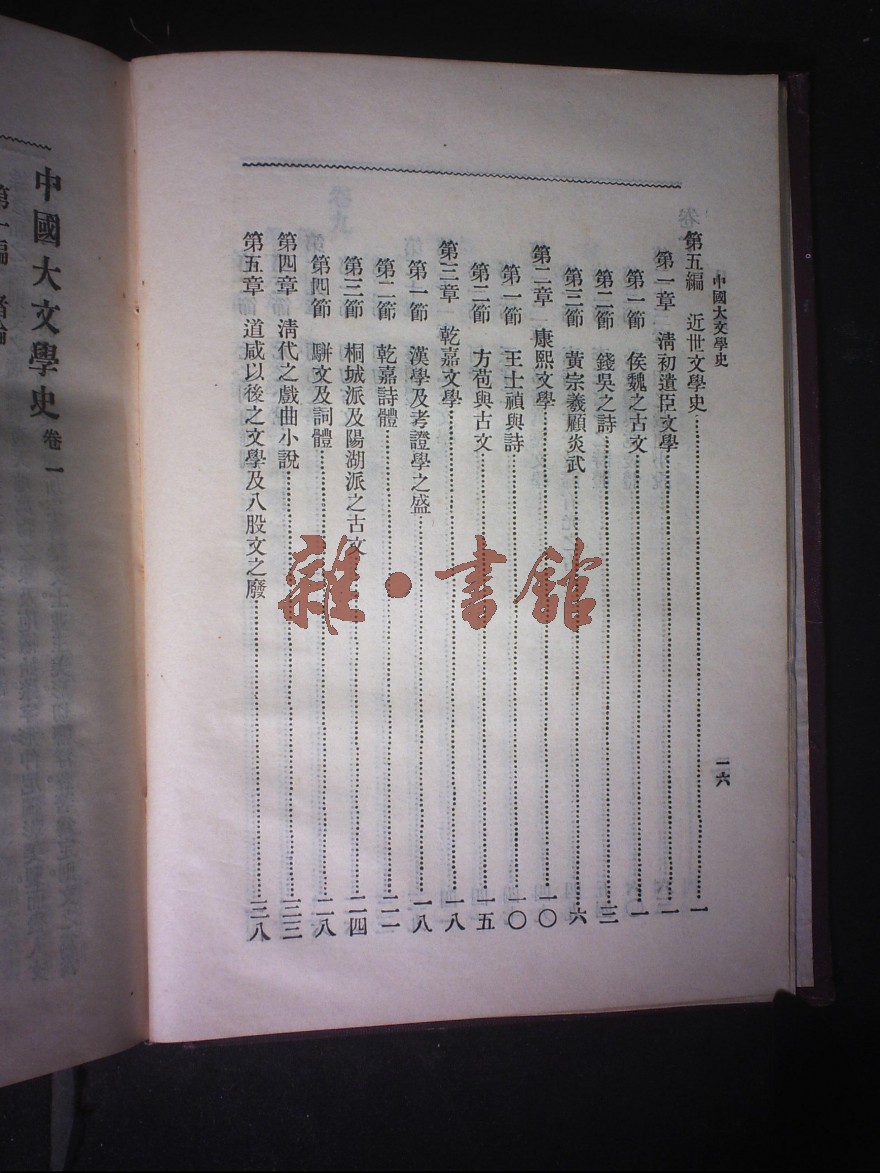 中國大文學史
一六
第五編 近世文學史 一
第一章 清初遺臣文學 一
第一節 侯魏之古文 一
第二節 錢吳之詩 三
第三節 黃宗羲顧炎武 六
第二章 康熙文學 一〇
第一節 王士禎與詩 一〇
第二節 方苞與古文 一五
第三章 乾嘉文學 一八
第一節 漢學及考證學之盛 一八
第二節 乾嘉詩體 二一
第三節 桐城派及陽湖派之古文 二四
第四節 駢文及詞體 二八
第四章 清代之戲曲小說 三三
第五章 道咸以後之文學及八股文之廢 三八
中國大文學史 卷一
第一編
雜·書館